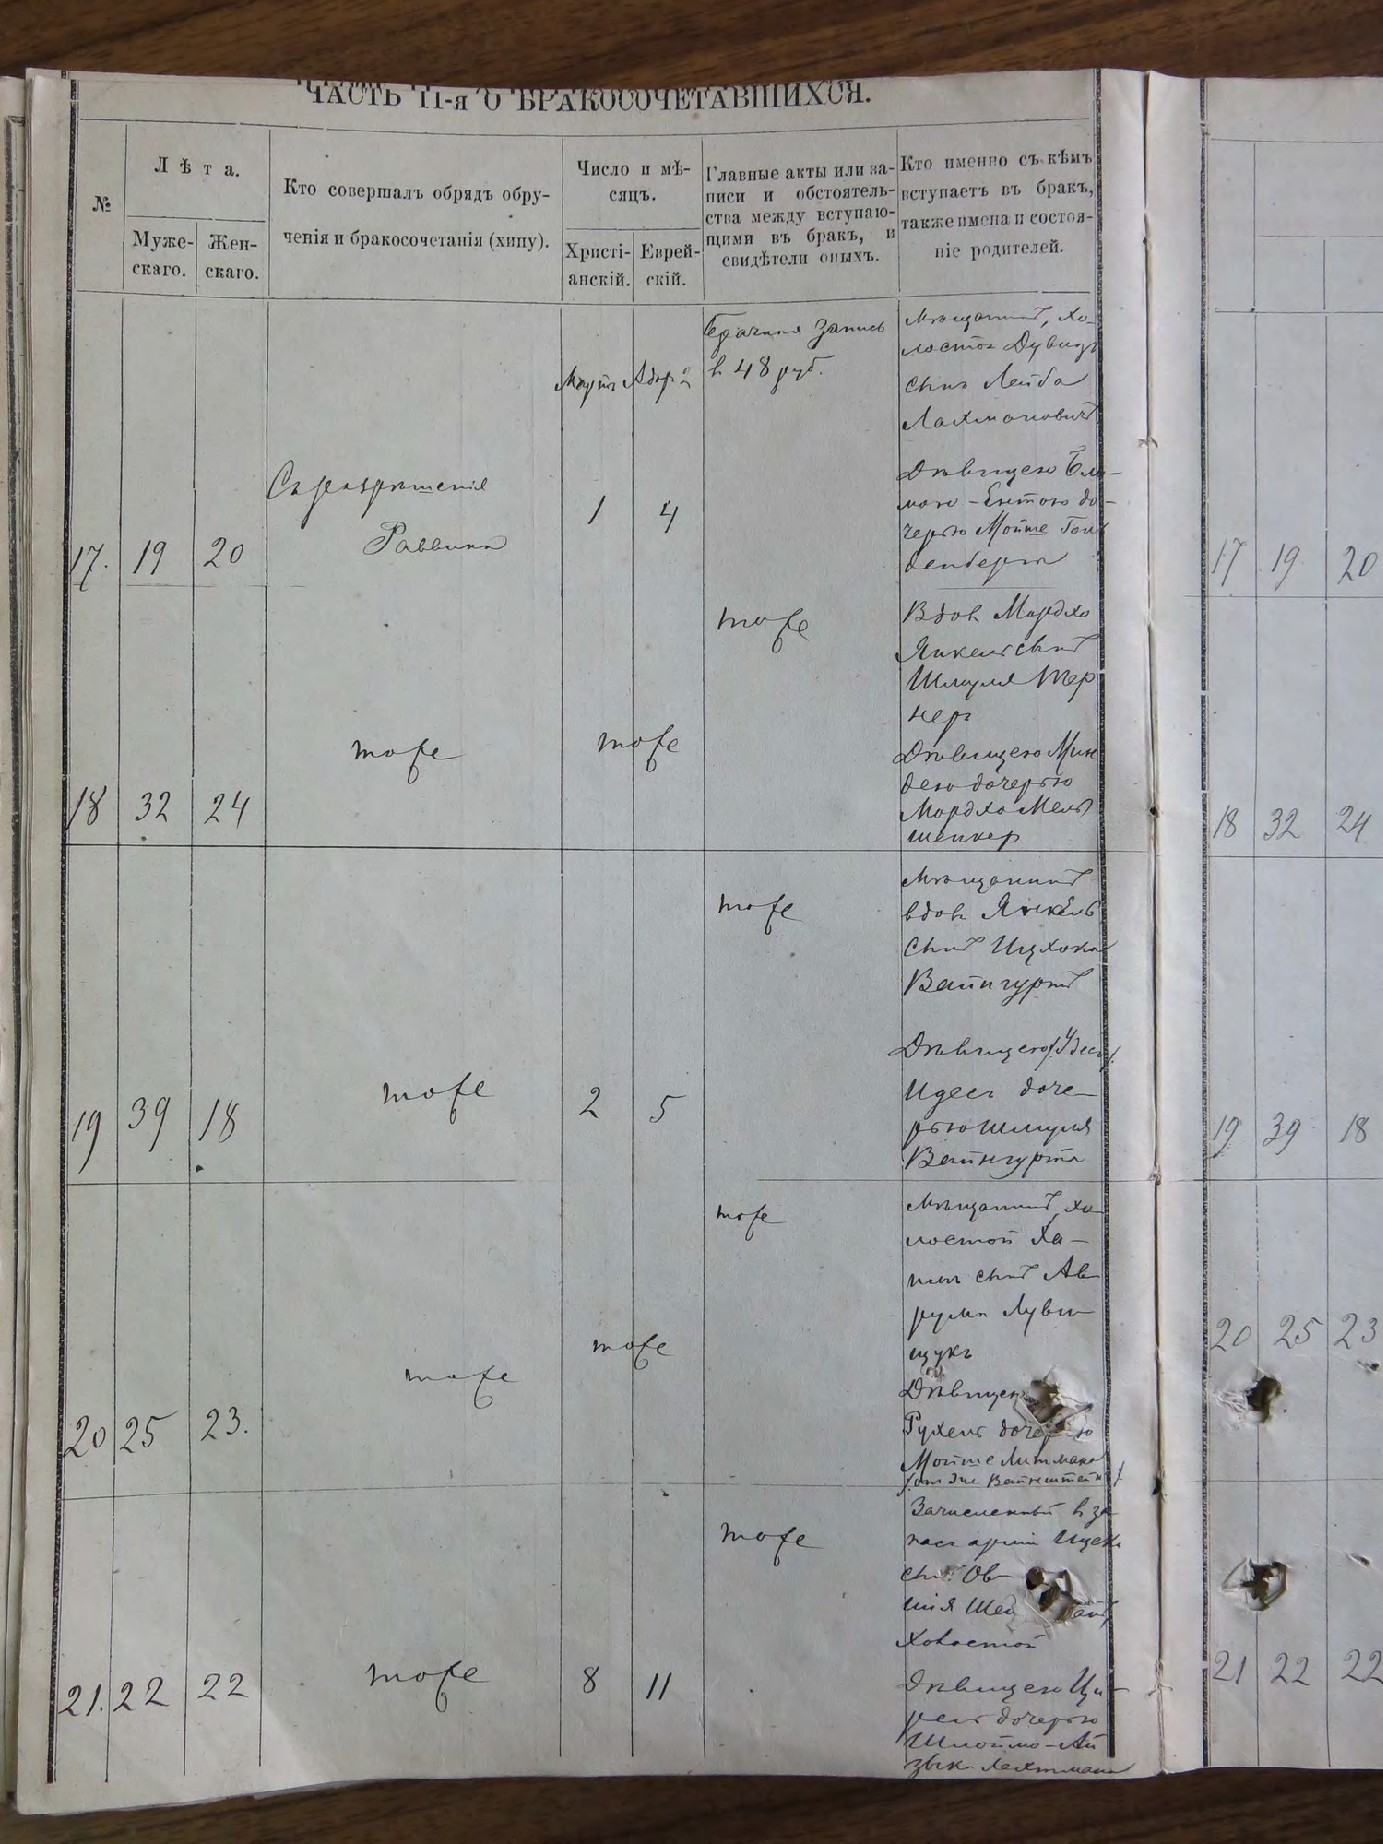 ЧАСТЬ II-я О БРАКОСОЧЕТАВШИХСЯ.
№
Лѣта.
Муже-
скаго.
Жен-
скаго.
Кто совершалъ обрядъ обру-
ченія и бракосочетанія (хипу).
Число и мѣ-
сяцъ.
Христі-
анскій.
Еврей-
скій.
Главные акты или за-
писи и обстоятель-
ства между вступаю-
щими въ бракъ, и
свидѣтели оныхъ.
Кто именно съ кѣмъ
вступаетъ въ бракъ,
также имена и состоя-
ніе родителей.
17. 19 20
Съ разрѣшенія
Раввина
Мартъ Адаръ 2
1 4
Брачная запись
в 48 руб.
Мѣщанинъ, хо-
лостой
сынъ Лейба
Лахмановичъ
Дѣвицею
дo-
черью Мойше
18 32 24
тоже
тоже
тоже
Вдов. Мордхо
Янкель сынъ
Шмуля Тер
нер
Дѣвицею Мин
дею дочерью
Мордхо Мель
шенкер
19 39 18
тоже
2 5
тоже
Мѣщанинъ
вдов. Янкель
сынъ Ицхока
Вайнгуртъ
Дѣвицею
Идес доче-
рью Шмуля
Вайнгурта
20 25 23.
тоже
тоже
тоже
Мѣщанинъ, хо-
лостой Ха-
им сынъ Ав
рума
щукъ
Дѣвицею
Рухель дочерью
Мойше
21. 22 22
тоже
8 11
тоже
Зачисленный в за-
пас арміи
сынъ Ов-
шія
холостой
Дѣвицею Ци-
рель дочерью
Шлоймо-Ай
зык Лахтмана
17 19 20
18 32 24
19 39 18
20 25 23
21 22 22